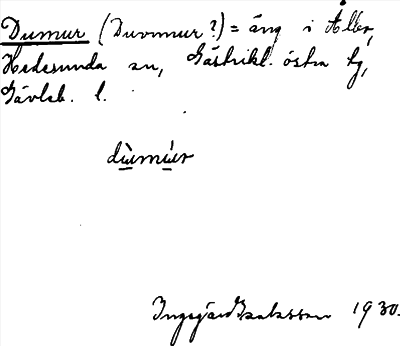 Dumur (Duvmur?) = äng i Ålbo,
Hedesunda sn, Gästrikl. östra tg,
Gävleb. l.
dùmúr
Ingegärd Isaksson 1930.